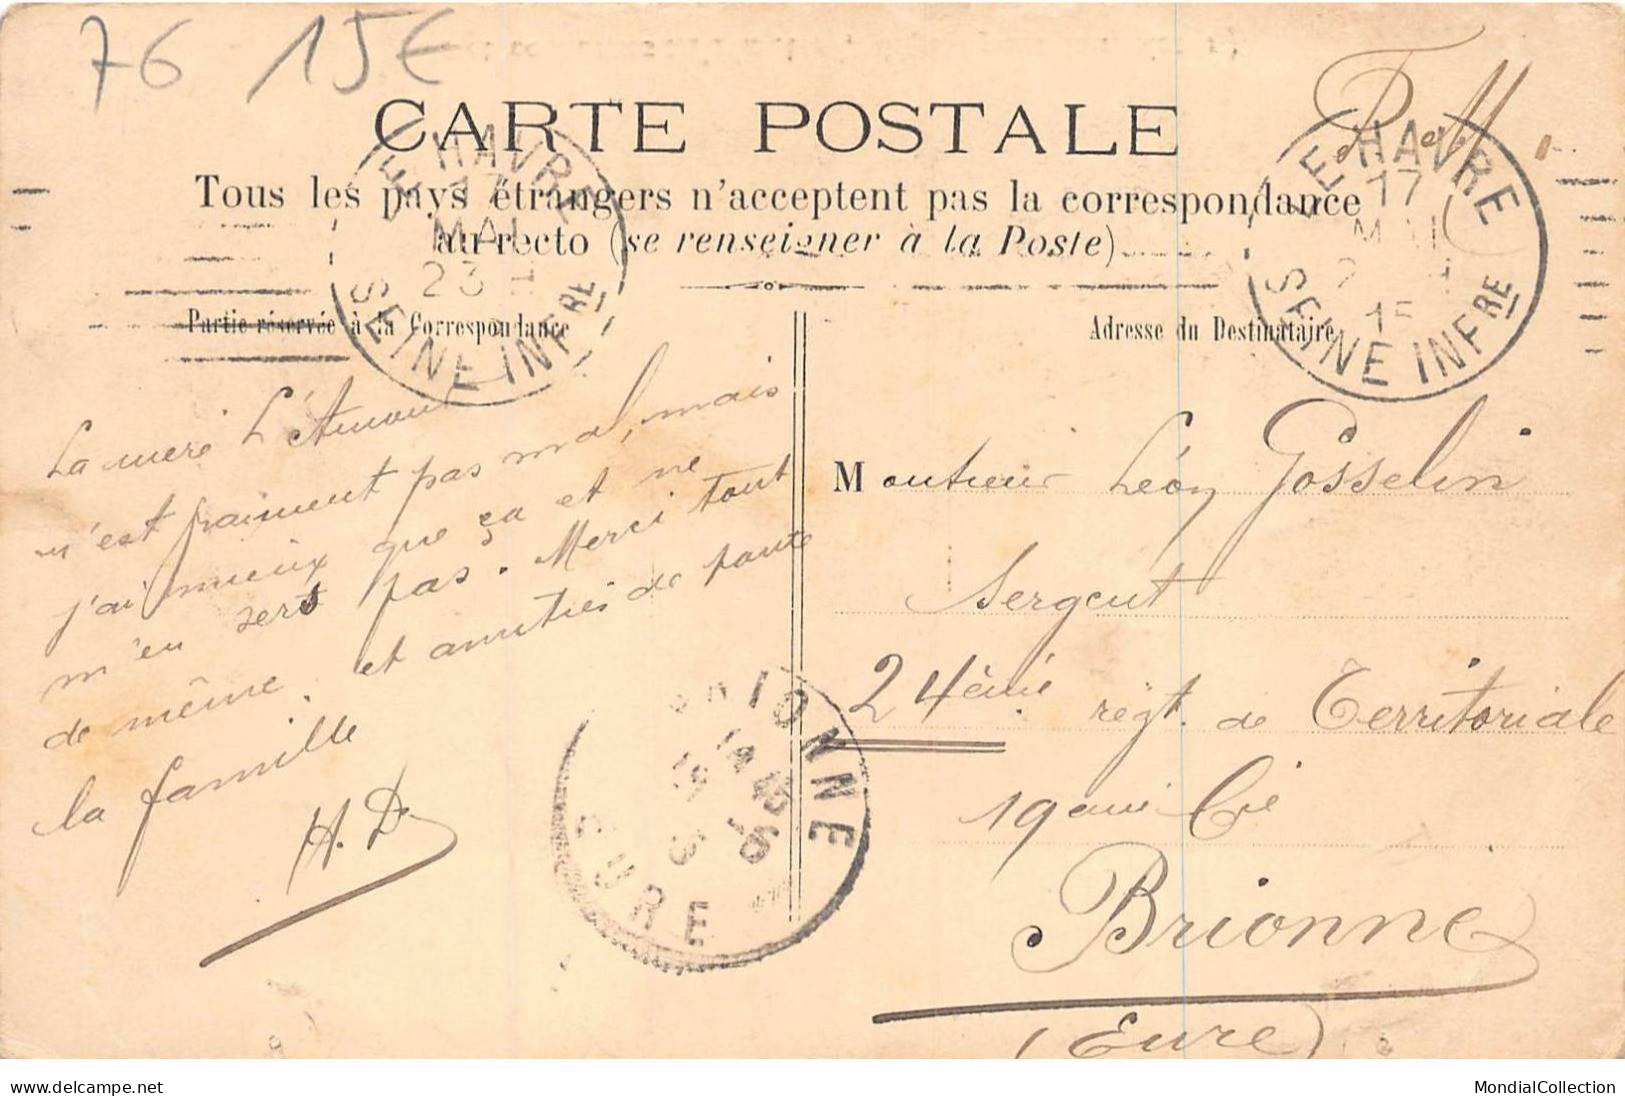 76 15€
F.M.
CARTE POSTALE
Tous les pays étrangers n'acceptent pas la correspondance
au recto (se renseigner à la Poste)
LE HAVRE
17
MAI
23
SEINE INFRE
LE HAVRE
17
MAI
15
SEINE INFRE
Partie réservée à la Correspondance
Adresse du Destinataire
La mère L'Amour
n'est fraiment pas mal, mais
j'ai mieux que ça et ne
m'en sers pas. Merci tout
de même. et amitiés de toute
la famille
H. D.
Monsieur Léon Gosselin
Sergent
24ème régt. de Territoriale
19eme Cie
Brionne
(Eure)
BRIONNE
14 45
EURE
www.delcampe.net
MondialCollection